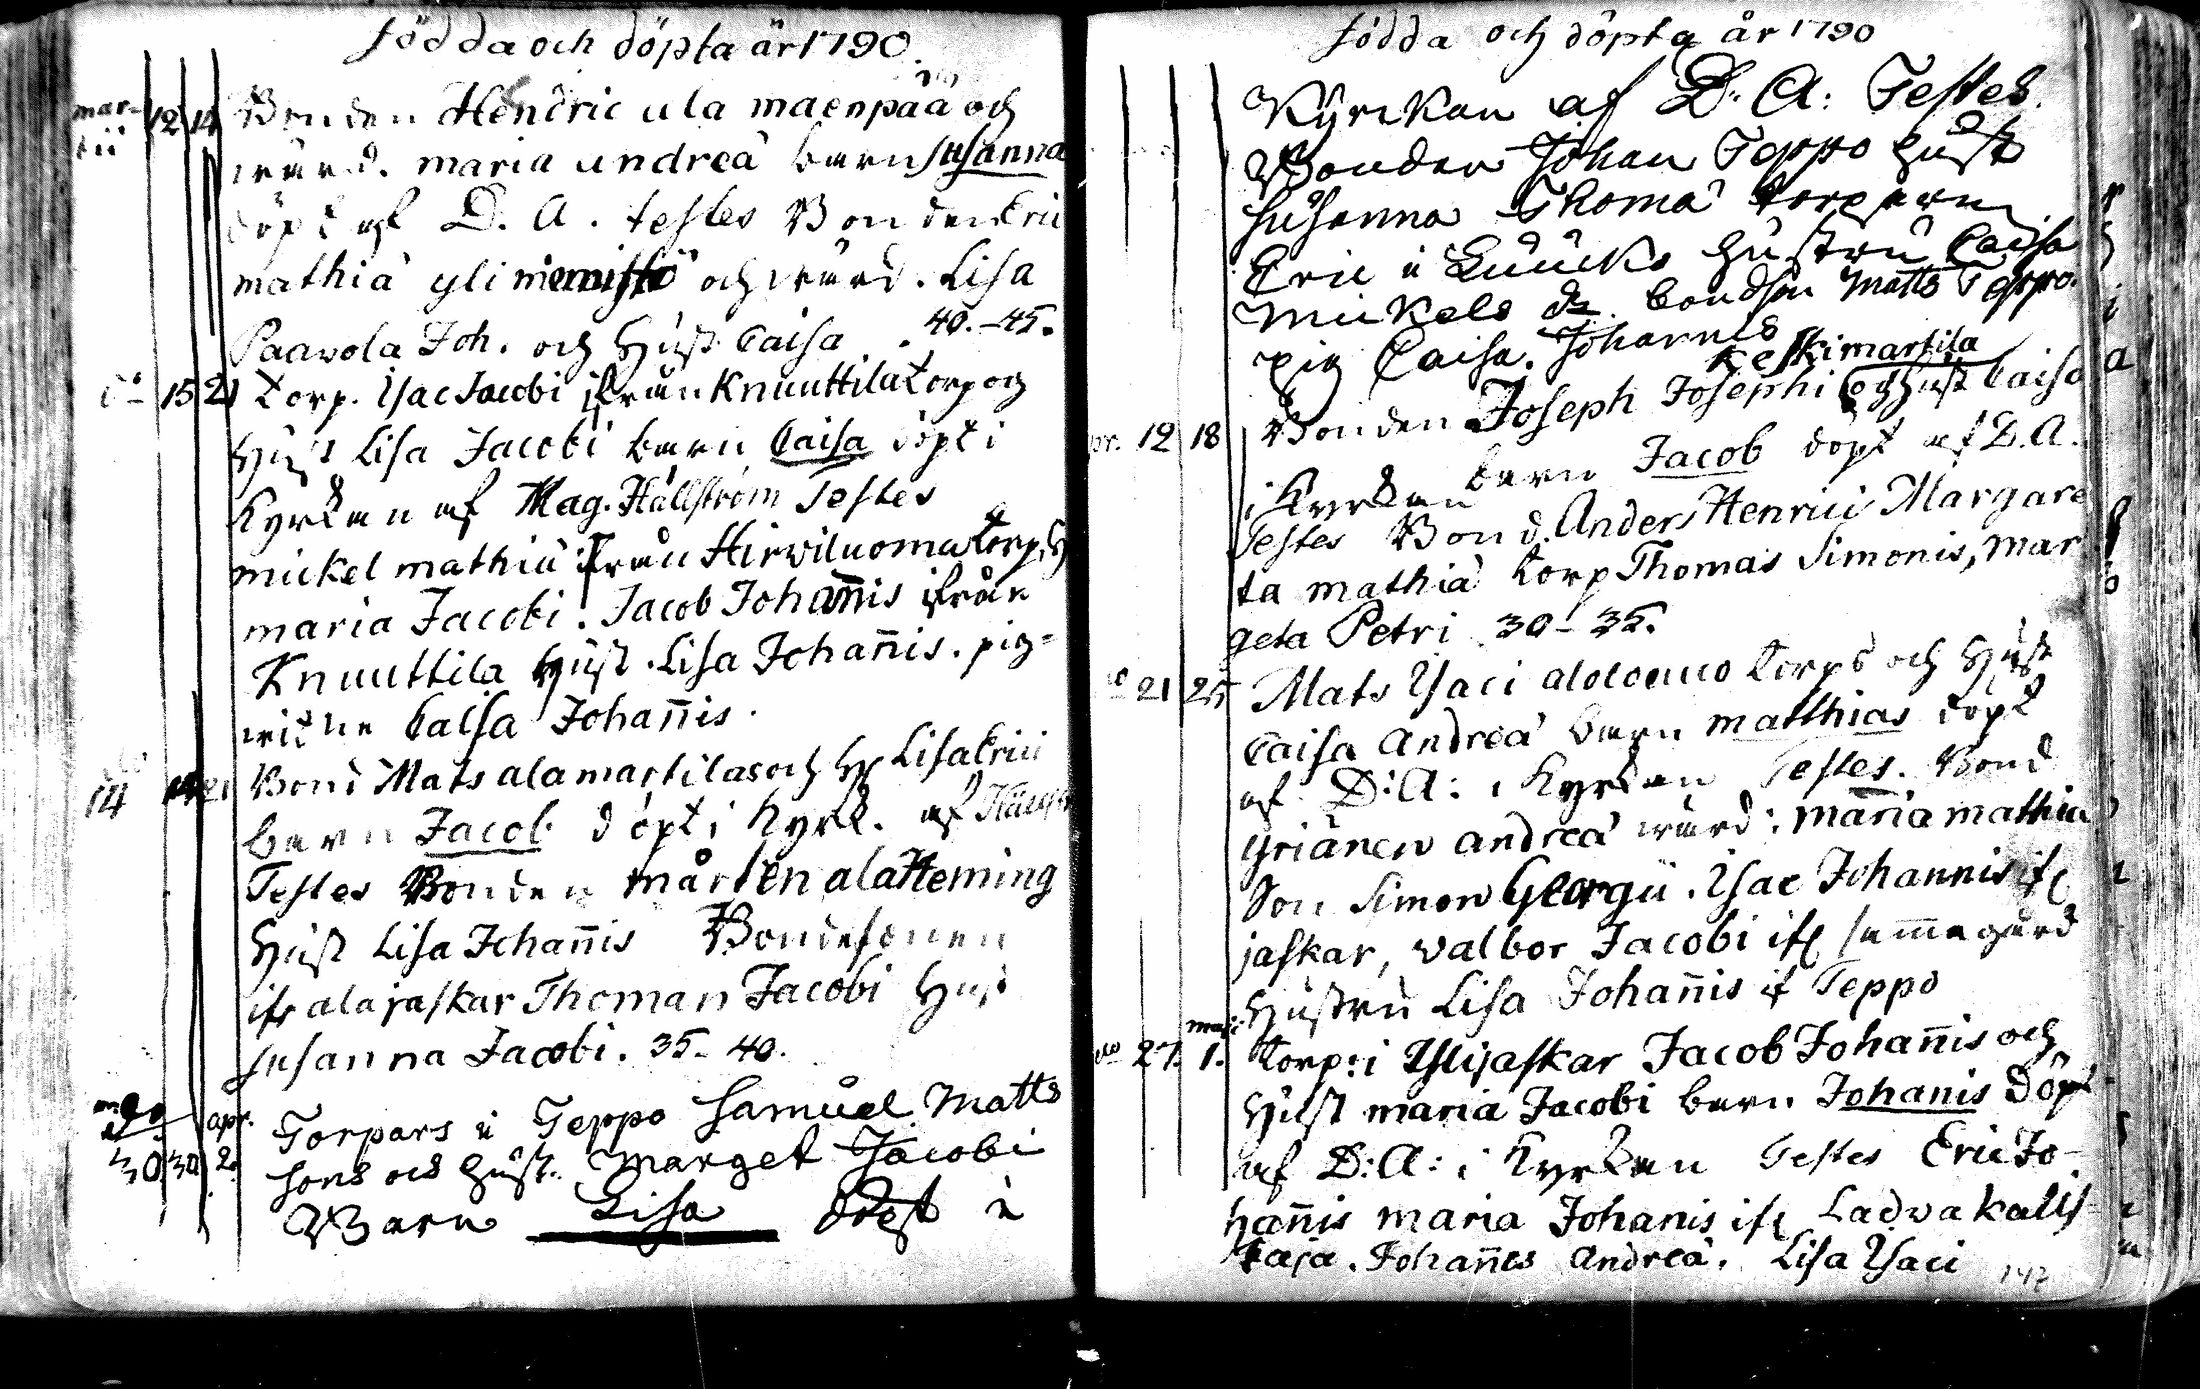 födda och döpta år 1790.
mar-
tii 12 14 Bonden Hendric ala maenpää och
wärd. maria andreä barn susanna
döpt af D. A. testes Bonden Eric
mathiä yli niemistö och wärd. Lisa
Paavola Joh. och Hust Caisa . 40.-45.
do 15 21 torp. Isac Jacobi ifrån Knuuttila torp och
Hust Lisa Jacobi barn Caisa döpt i
Kyrkan af Mag. Hällström Testes
mickel mathiä ifrån Hirviluoma torp. H
maria Jacobi. Jacob Johannis ifrån
Knuuttila Hust. Lisa Johannis. pig-
Caisa Johannis.
14 21 Bond Mats ala martilas och H Lisa Erici
barn Jacob döpt i Kyrk. af
Testes Bonden mårten ala Heming
Hust Lisa Johannis Bondesonen
ifr ala jaskar Thoman Jacobi Hust
susanna Jacobi. 35-40.
apr.
30 30 2. Torpars i Teppo Samuel Matts
sons och Hust. Marget Jacobi
Barn Lisa döpt i
födda och döpta år 1790
Kyrckan af D. A: Testes.
Bonden Johan Teppo Hust
Susanna Thomä torparen
Eric i Luucks Hustru Caisa
Mickels d:r bondson Matts Teppo.
pig Caisa. Johannis
Keskimartila
apr. 12 18 Bonden Joseph Josephi och Hust Caisa
barn Jacob döpt af D. A.
i Kyrkan
Testes Bond. Anders Henrici Margare
ta mathiä torp Thomas Simonis, mar
geta Petri 30-35.
do 21 25 Mats Isaci torps och Hust
Caisa Andreä barn matthias döpt
af D: A: i Kyrkan Testes. Bond
Yrjänen andreä wärd: maria mathiä
Son Simon Georgii. Isac Johannis ifr
jaskar, walbor Jacobi ifr samma gård
Hustru Lisa Johannis if Teppo
maji
do 27. 1. torp: i Ylijaskar Jacob Johannis och
Hust maria Jacobi barn Johanis döpt
af D: A: i Kyrkan Testes Eric Jo-
hannis maria Johanis ifr Ladvakallis
taja. Johannes Andreä. Lisa Isaci
147